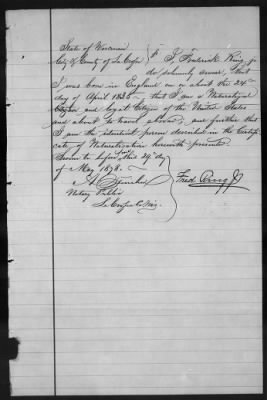 State of Wisconsin
City & County of La Crosse } I, Frederick Ring Jr
do solemnly swear, that
I was born in England on or about the 24
day of April 1835 that I am a Naturalized
Citizen and loyal Citizen of the United States
and about to travel abroad; and further that
I am the identical person described in the Certifi-
cate of Naturalization herewith presented.
Sworn to before me this 29th day
of May 1874.
Fred Ring Jr
Notary Public
La Crosse Co Wis.